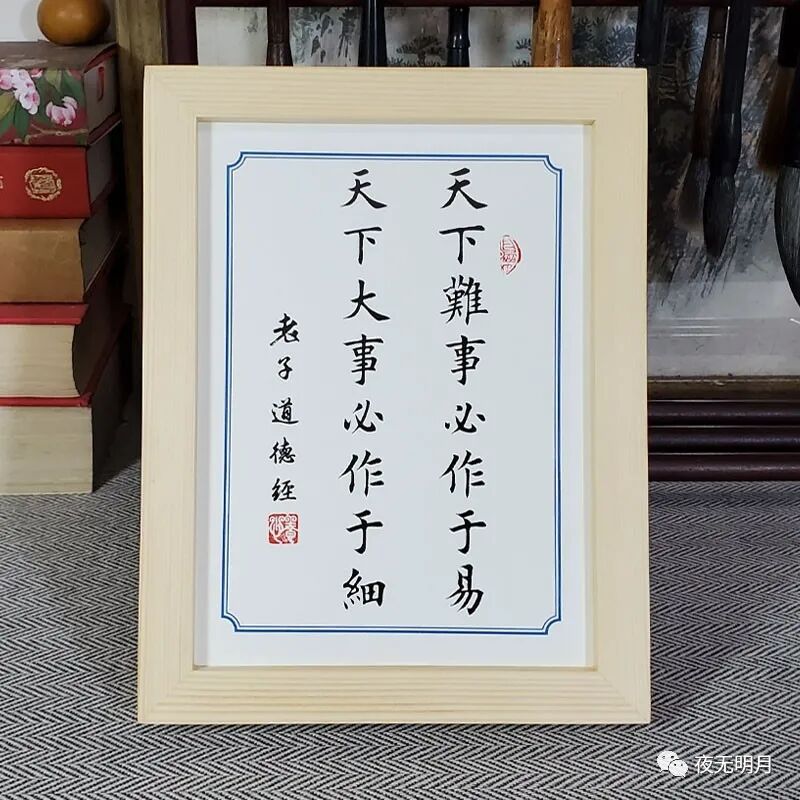 天下難事必作于易
天下大事必作于細
老子道德经
夜无明月